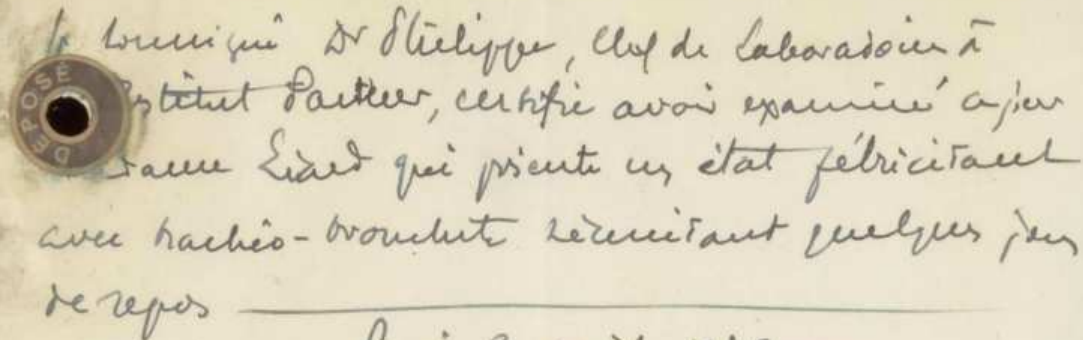 Je soussigné Dr Philippe, Chef de Laboratoire à
Institut Pasteur, certifie avoir examiné ce jour
DÉPOSÉ
dame Liard qui présente un état fébricitant
avec trachéo-bronchite nécessitant quelques jours
de repos